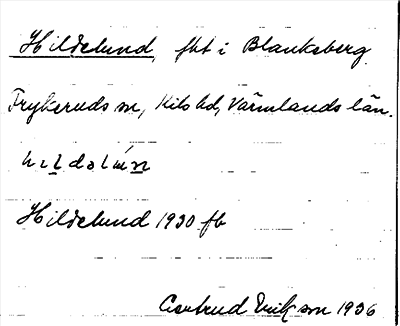 Hildelund, fbt i Blanksberg
Frykeruds sn, Kils hd, Värmlands län.
hıldəlún
Hildelund 1930 fb
Gertrud Erikson 1936